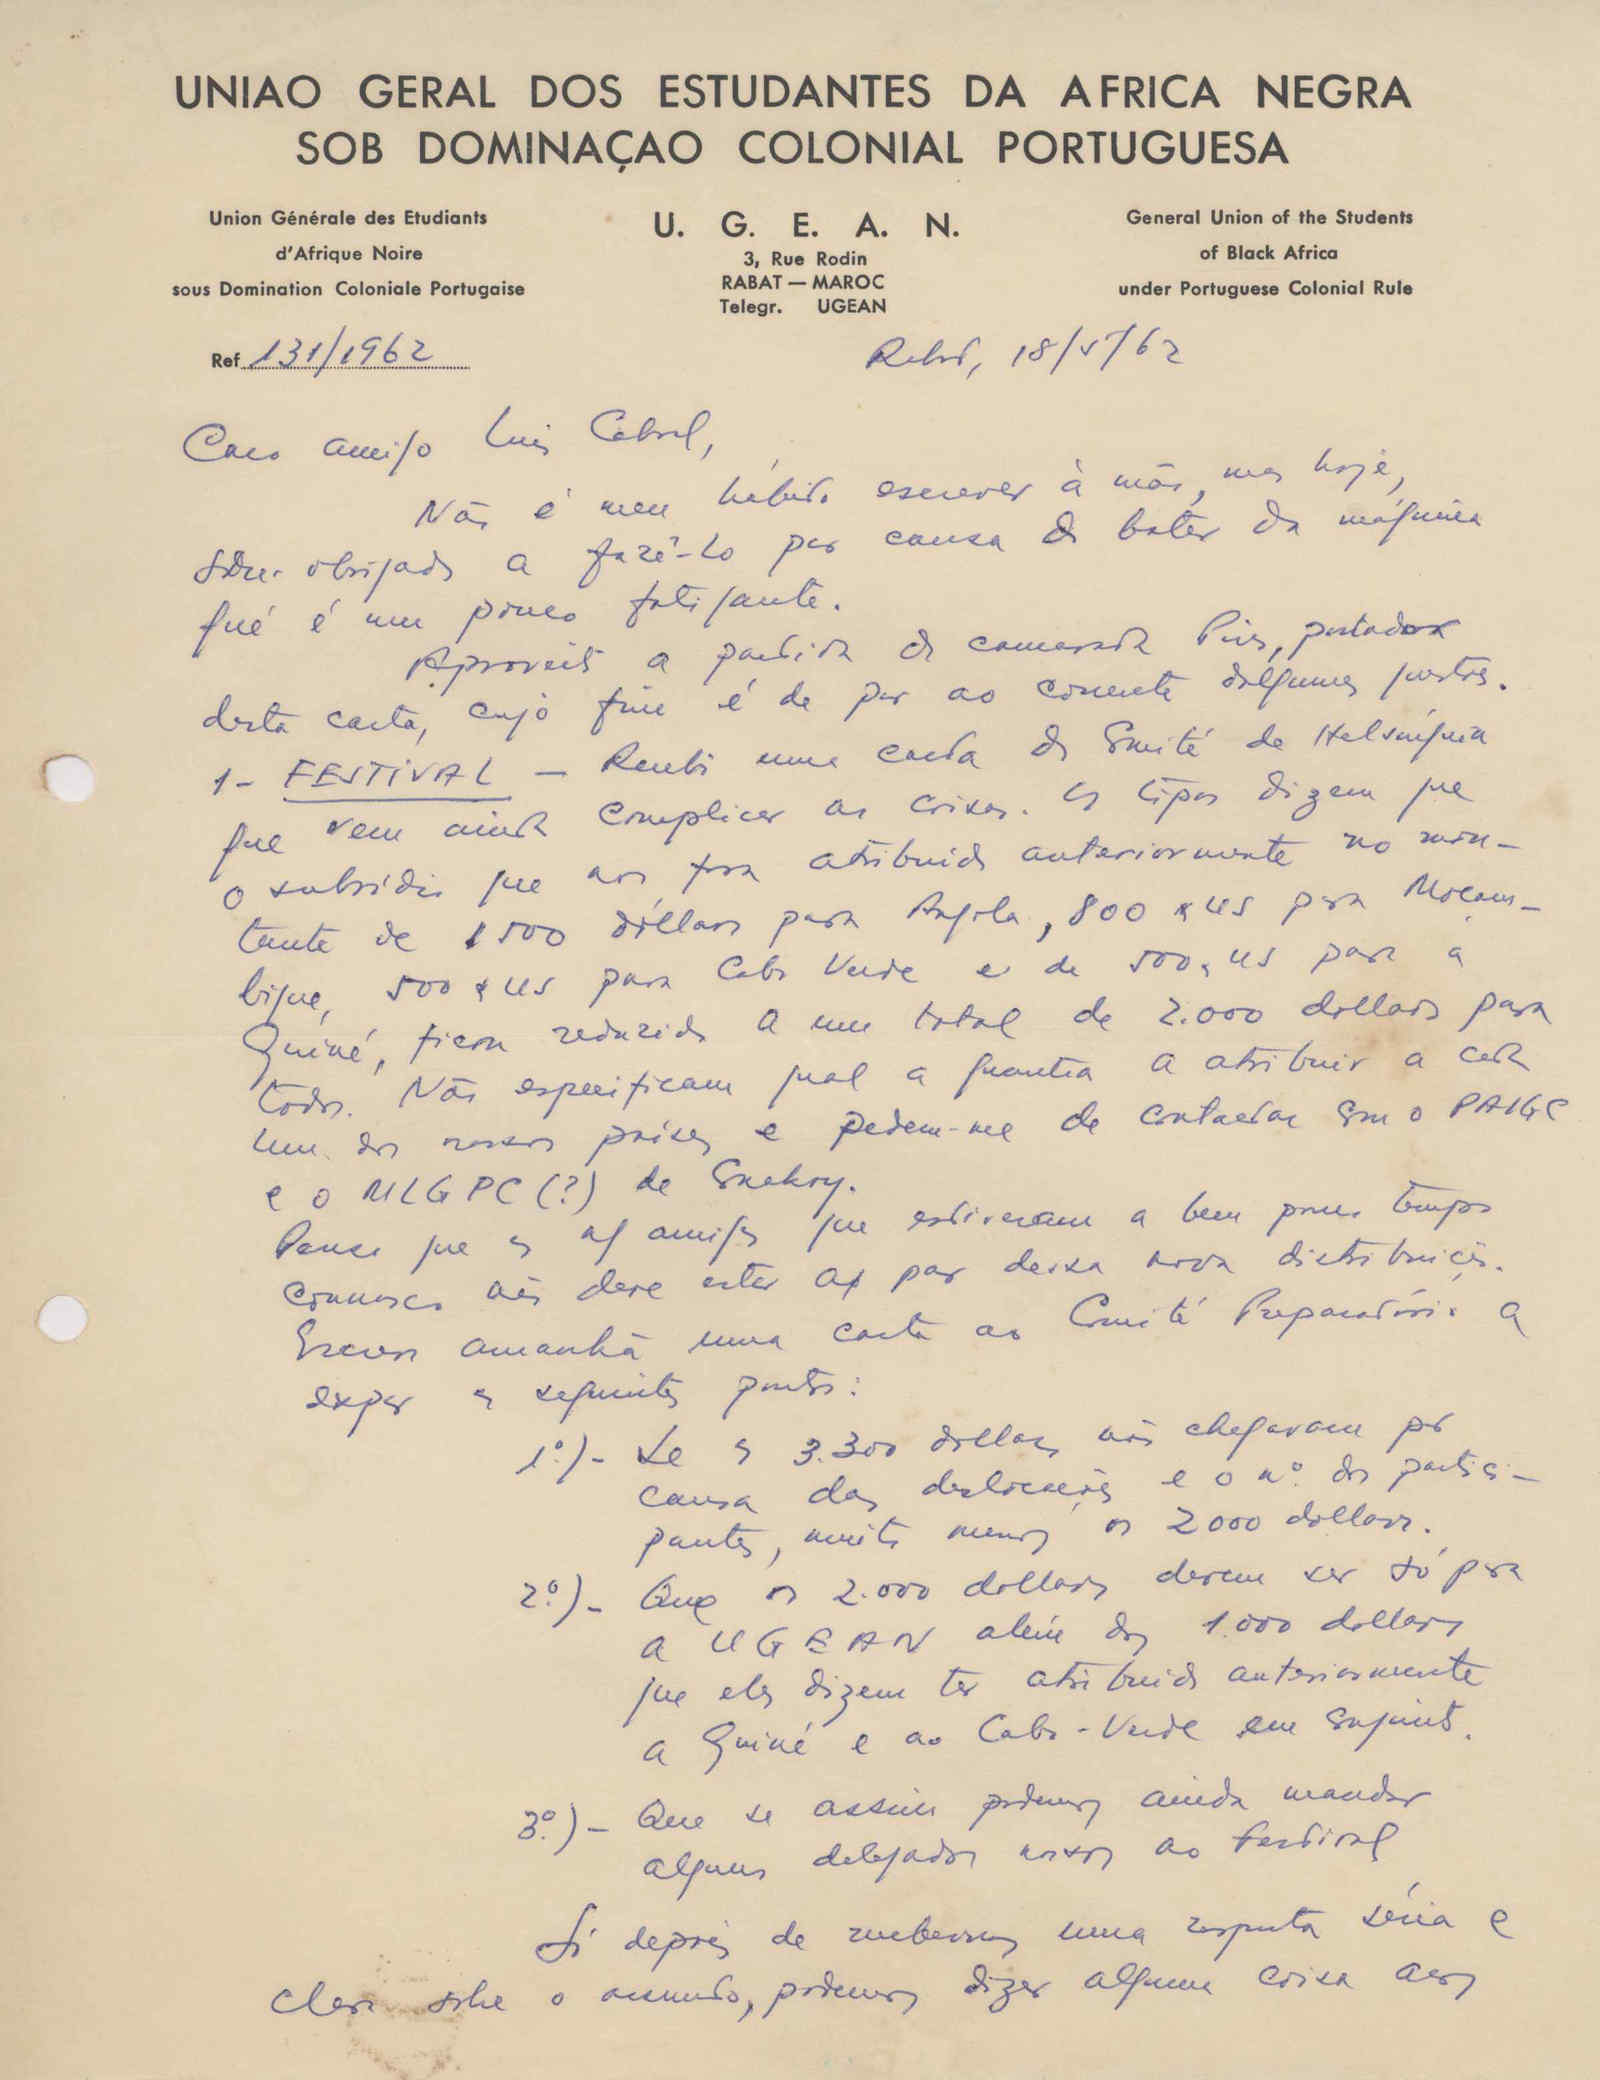 UNIAO GERAL DOS ESTUDANTES DA AFRICA NEGRA
SOB DOMINAÇAO COLONIAL PORTUGUESA
Union Générale des Etudiants
d'Afrique Noire
sous Domination Coloniale Portugaise
U. G. E. A. N.
3, Rue Rodin
RABAT — MAROC
Telegr. UGEAN
General Union of the Students
of Black Africa
under Portuguese Colonial Rule
Ref 131/1962
Rabat, 18/5/62
Caro amigo Luis Cabral,
Não é meu hábito escrever à mão, mas hoje,
sou obrigado a fazê-lo por causa do bater da máquina
que é um pouco fatigante.
Aproveito a partida do camarada Pires, portador
desta carta, cujo fim é de por ao corrente dalgumas pontos.
1- FESTIVAL — Recebi uma carta do Comité de Helsínquia
que vem ainda complicar as coisas. Os tipos dizem que
o subsídio que nos fora atribuido anteriormente no mon-
tante de 1500 dóllars para Angola, 800 $ US para Moçam-
bique, 500 $ US para Cabo Verde e de 500 $ US para a
Guiné, ficou reduzido a um total de 2.000 dollars para
todos. Não especificam qual a quantia a atribuir a cada
um dos nossos países e pedem-me de contactar com o PAIGC
e o MLGPC (?) de Conakry.
Penso que os amigos que estiveram a bem pouco tempo
connosco não deve estar ao par dessa nova distribuição.
Escrevo amanhã uma carta ao Comité Preparatório a
expor os seguintes pontos:
1º.) - Se os 3.300 dollars não chegavam por
causa das deslocações e o nº. dos partici-
pantes, muito menos os 2000 dollars.
2º.) - Que os 2.000 dollars devem ser só para
a UGEAN além dos 1.000 dollars
que eles dizem ter atribuido anteriormente
a Guiné e ao Cabo-Verde em conjunto.
3º.) - Que se assim podemos ainda mandar
alguns delegados nossos ao Festival
Só depois de recebermos uma resposta séria e
clara sobre o assunto, podemos dizer alguma coisa aos